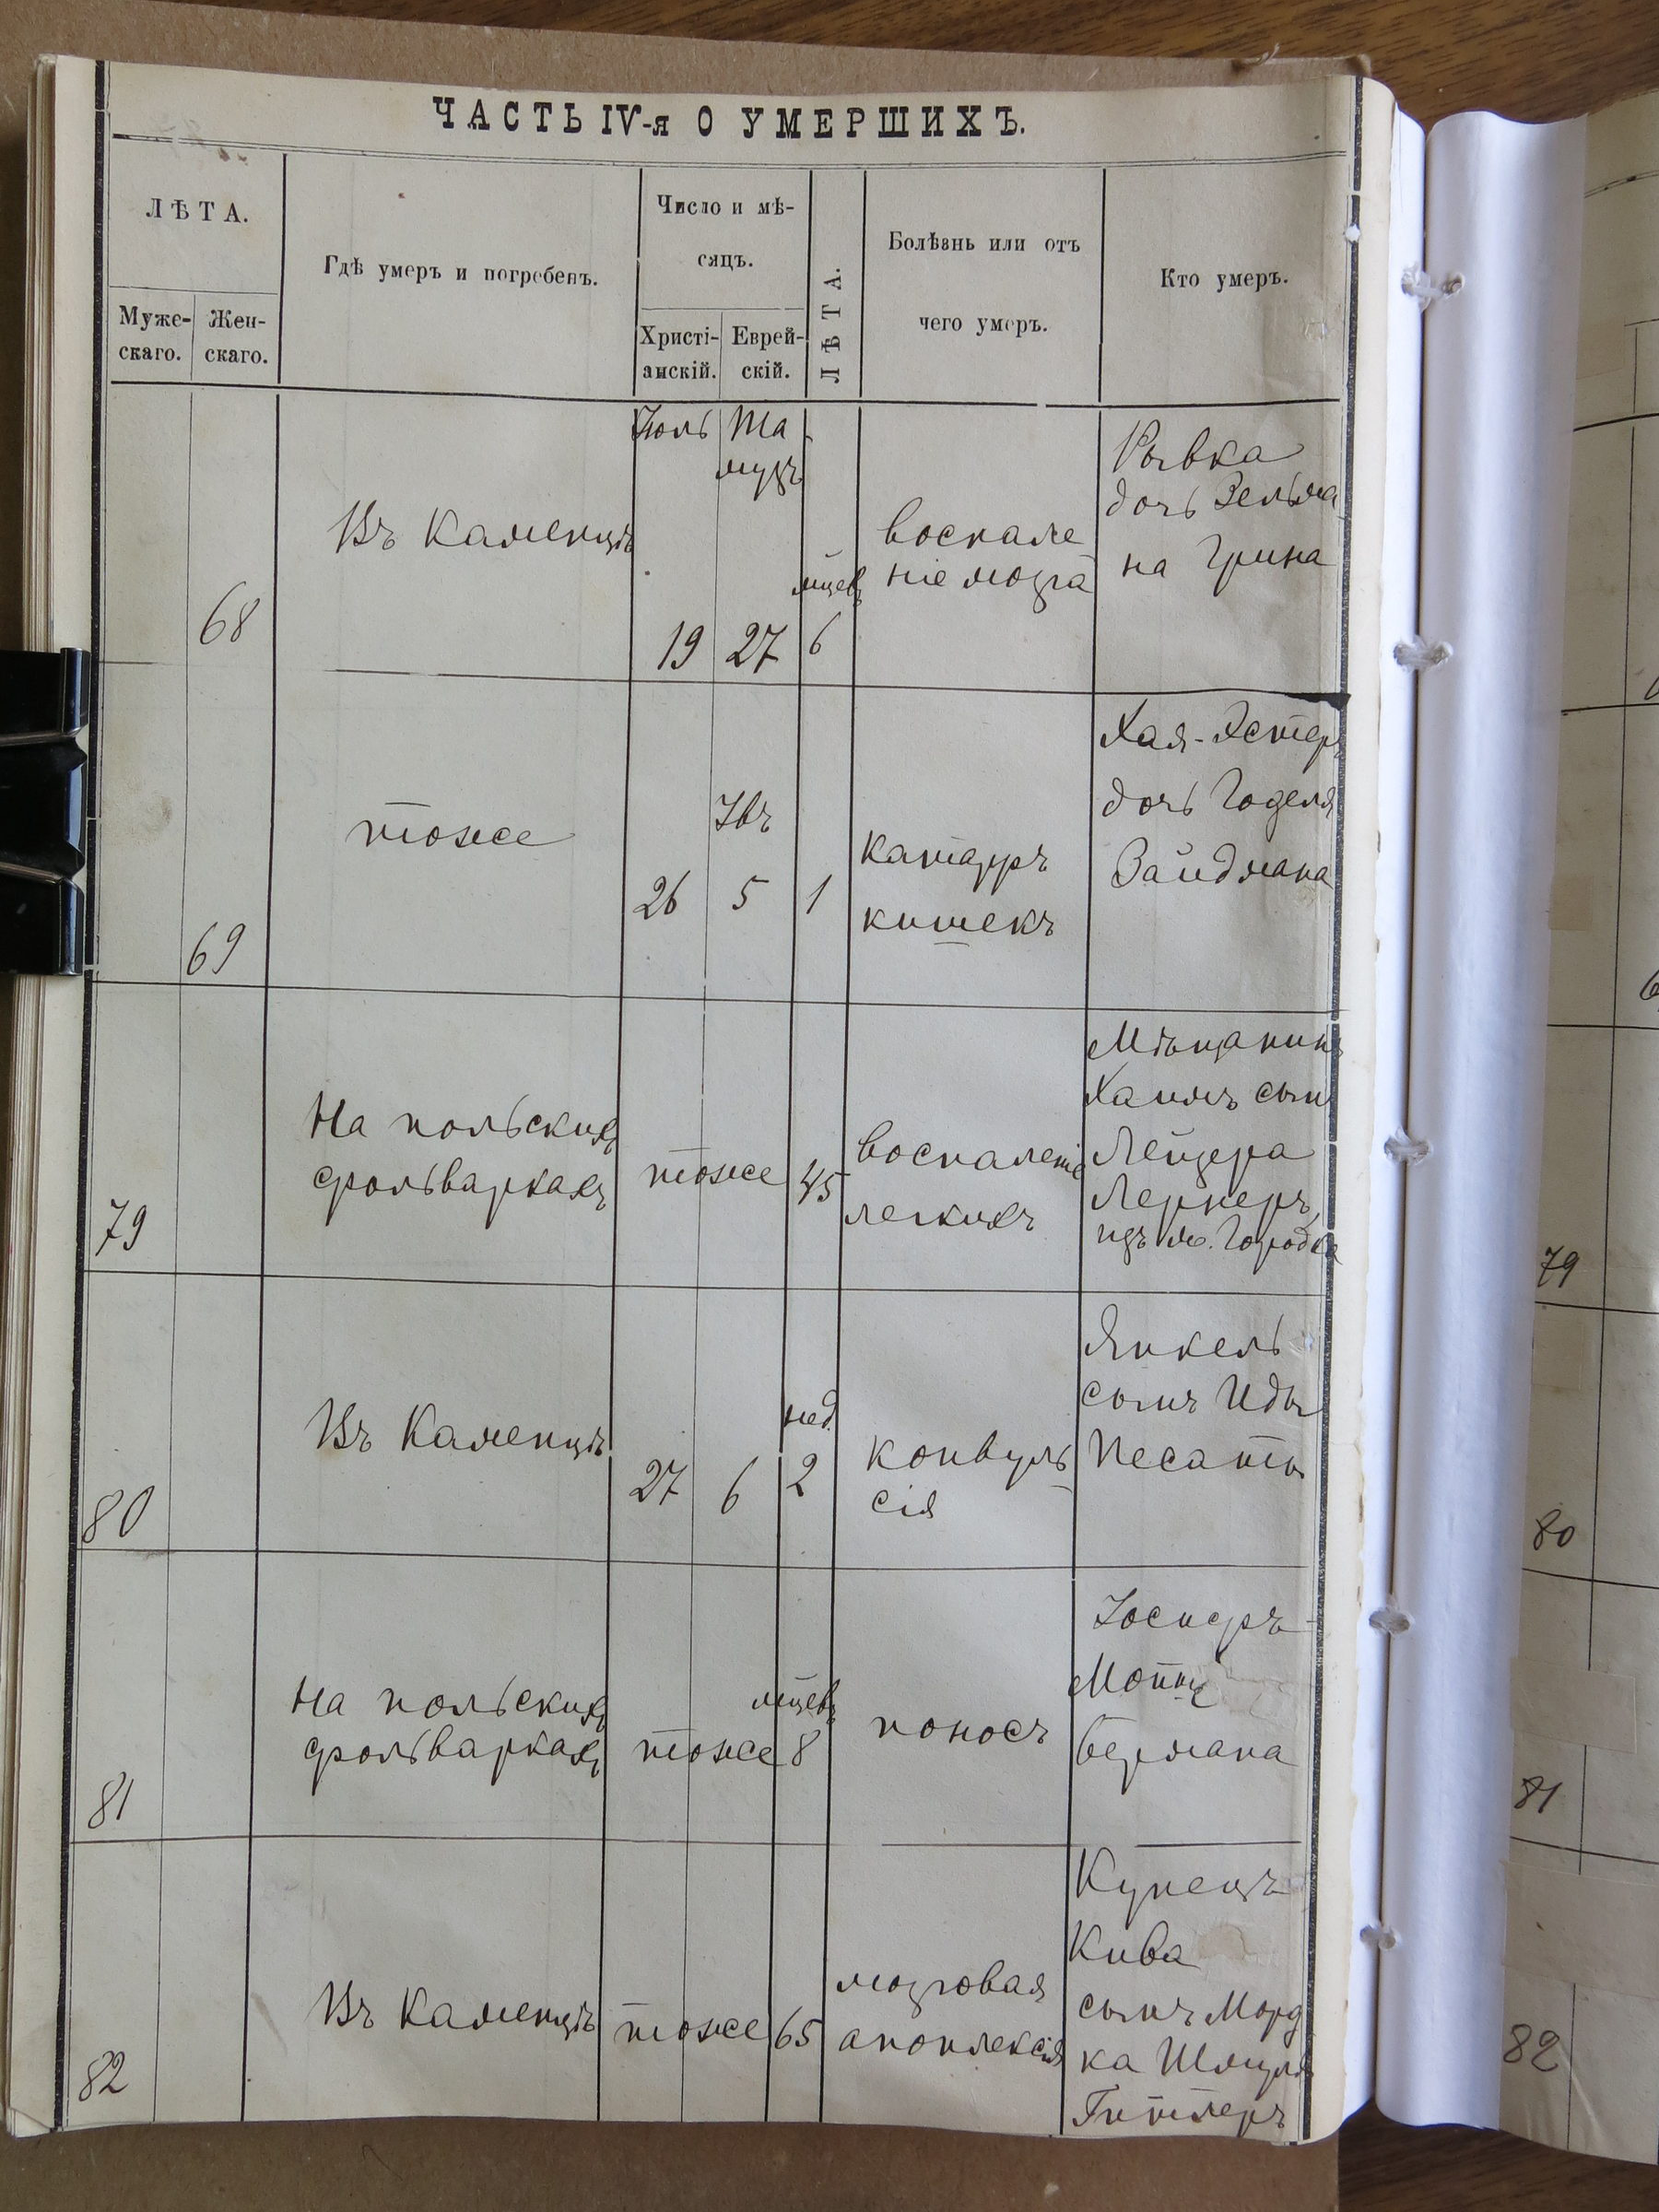 ЧАСТЬ IV-я О УМЕРШИХЪ.
ЛѢТА.
Муже-
скаго.
Жен-
скаго.
Гдѣ умеръ и погребенъ.
Число и мѣ-
сяцъ.
Христі-
анскій.
Еврей-
скій.
ЛѢТА.
Болѣзнь или отъ
чего умеръ.
Кто умеръ.
68
Въ Каменцѣ
Іюль
19
Та
музъ
27
мцевъ
6
воспале
ніе мозга
Рывка
дочь Зельма
на Грина
69
тоже
26
Івъ
5
1
катарръ
кишекъ
Хая-Эстеръ
дочь Годеля
Зайдмана
79
На польскихъ
фольваркахъ
тоже
45
воспаленіе
легкихъ
Мѣщанинъ
Хаимъ сынъ
Лейзера
Лернеръ
изъ м. Городка
80
Въ Каменцѣ
27
6
нед.
2
конвуль
сія
Янкель
сынъ Иды
Песаты
81
На польскихъ
фольваркахъ
тоже
мцевъ
8
поносъ
Іосифъ-
Бермана
82
Въ Каменцѣ
тоже
65
мозговая
апоплексія
Купецъ
Кива
сынъ Морд
ка Шмуля
Гитлеръ
79
80
81
82